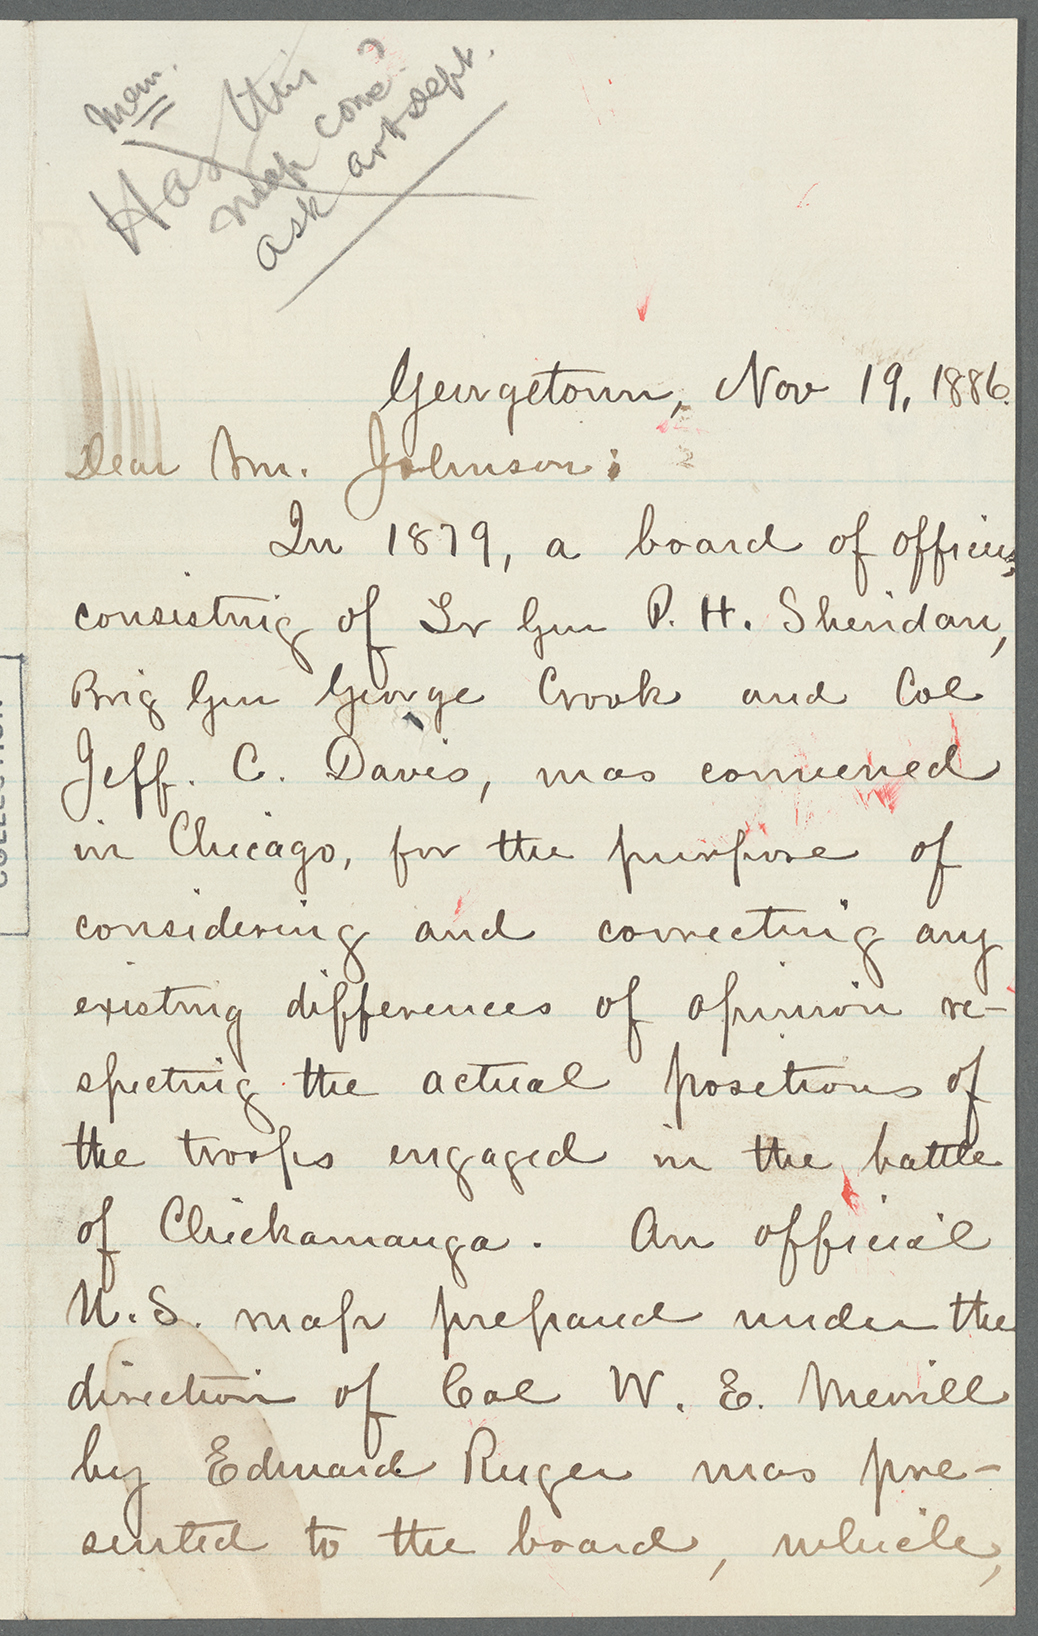 Mem.
Has this
map come?
ask art dept.
Georgetown, Nov 19, 1886.
Dear Mr. Johnson:
In 1879, a board of officers,
consisting of Lt Gen P. H. Sheridan,
Brig Gen George Crook and Col
Jeff. C. Davis, was convened
in Chicago, for the purpose of
considering and correcting any
existing differences of opinion re-
specting the actual positions of
the troops engaged in the battle
of Chickamauga. An official
U.S. map prepared under the
direction of Col W. E. Merrill
by Edward Ruger was pre-
sented to the board, which,
COLLECTION